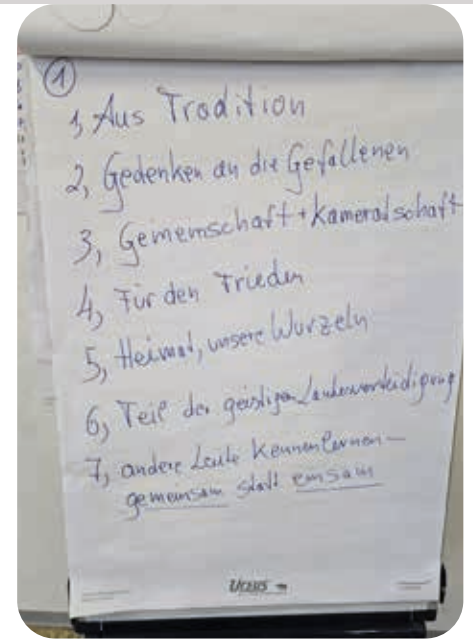 1
1, Aus Tradition
2, Gedenken an die Gefallenen
3, Gemeinschaft + Kameradschaft
4, Für den Frieden
5, Heimat, unsere Wurzeln
6, Teil der geistigen Landesverteidigung
7, andere Leute kennenlernen –
gemeinsam statt einsam